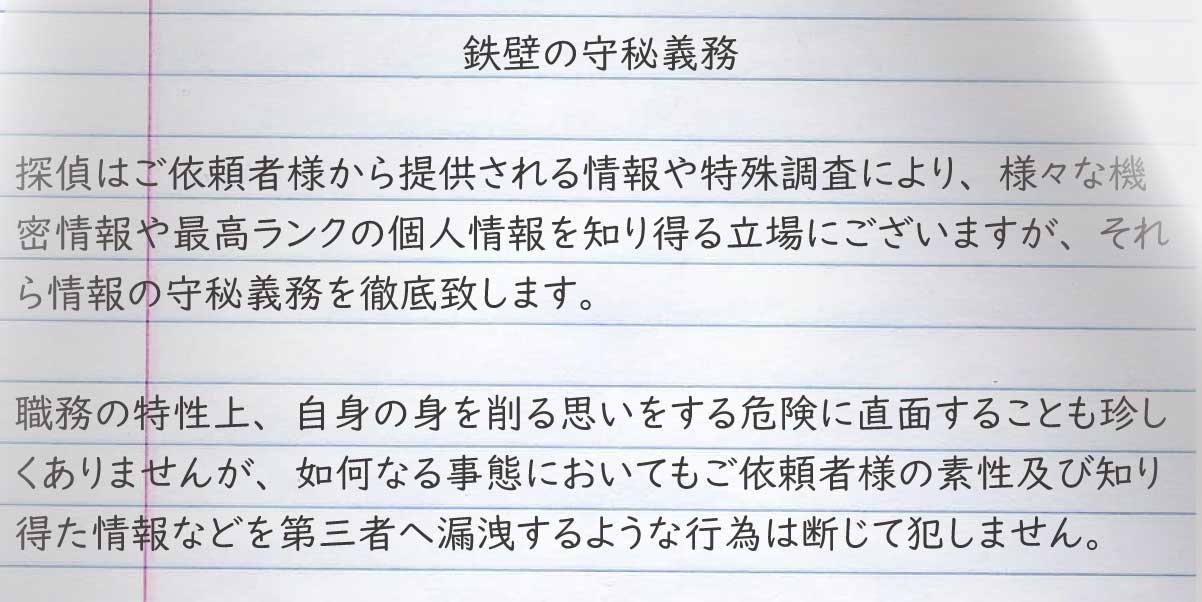 鉄壁の守秘義務
探偵はご依頼者様から提供される情報や特殊調査により、様々な機
密情報や最高ランクの個人情報を知り得る立場にございますが、それ
ら情報の守秘義務を徹底致します。
職務の特性上、自身の身を削る思いをする危険に直面することも珍し
くありませんが、如何なる事態においてもご依頼者様の素性及び知り
得た情報などを第三者へ漏洩するような行為は断じて犯しません。